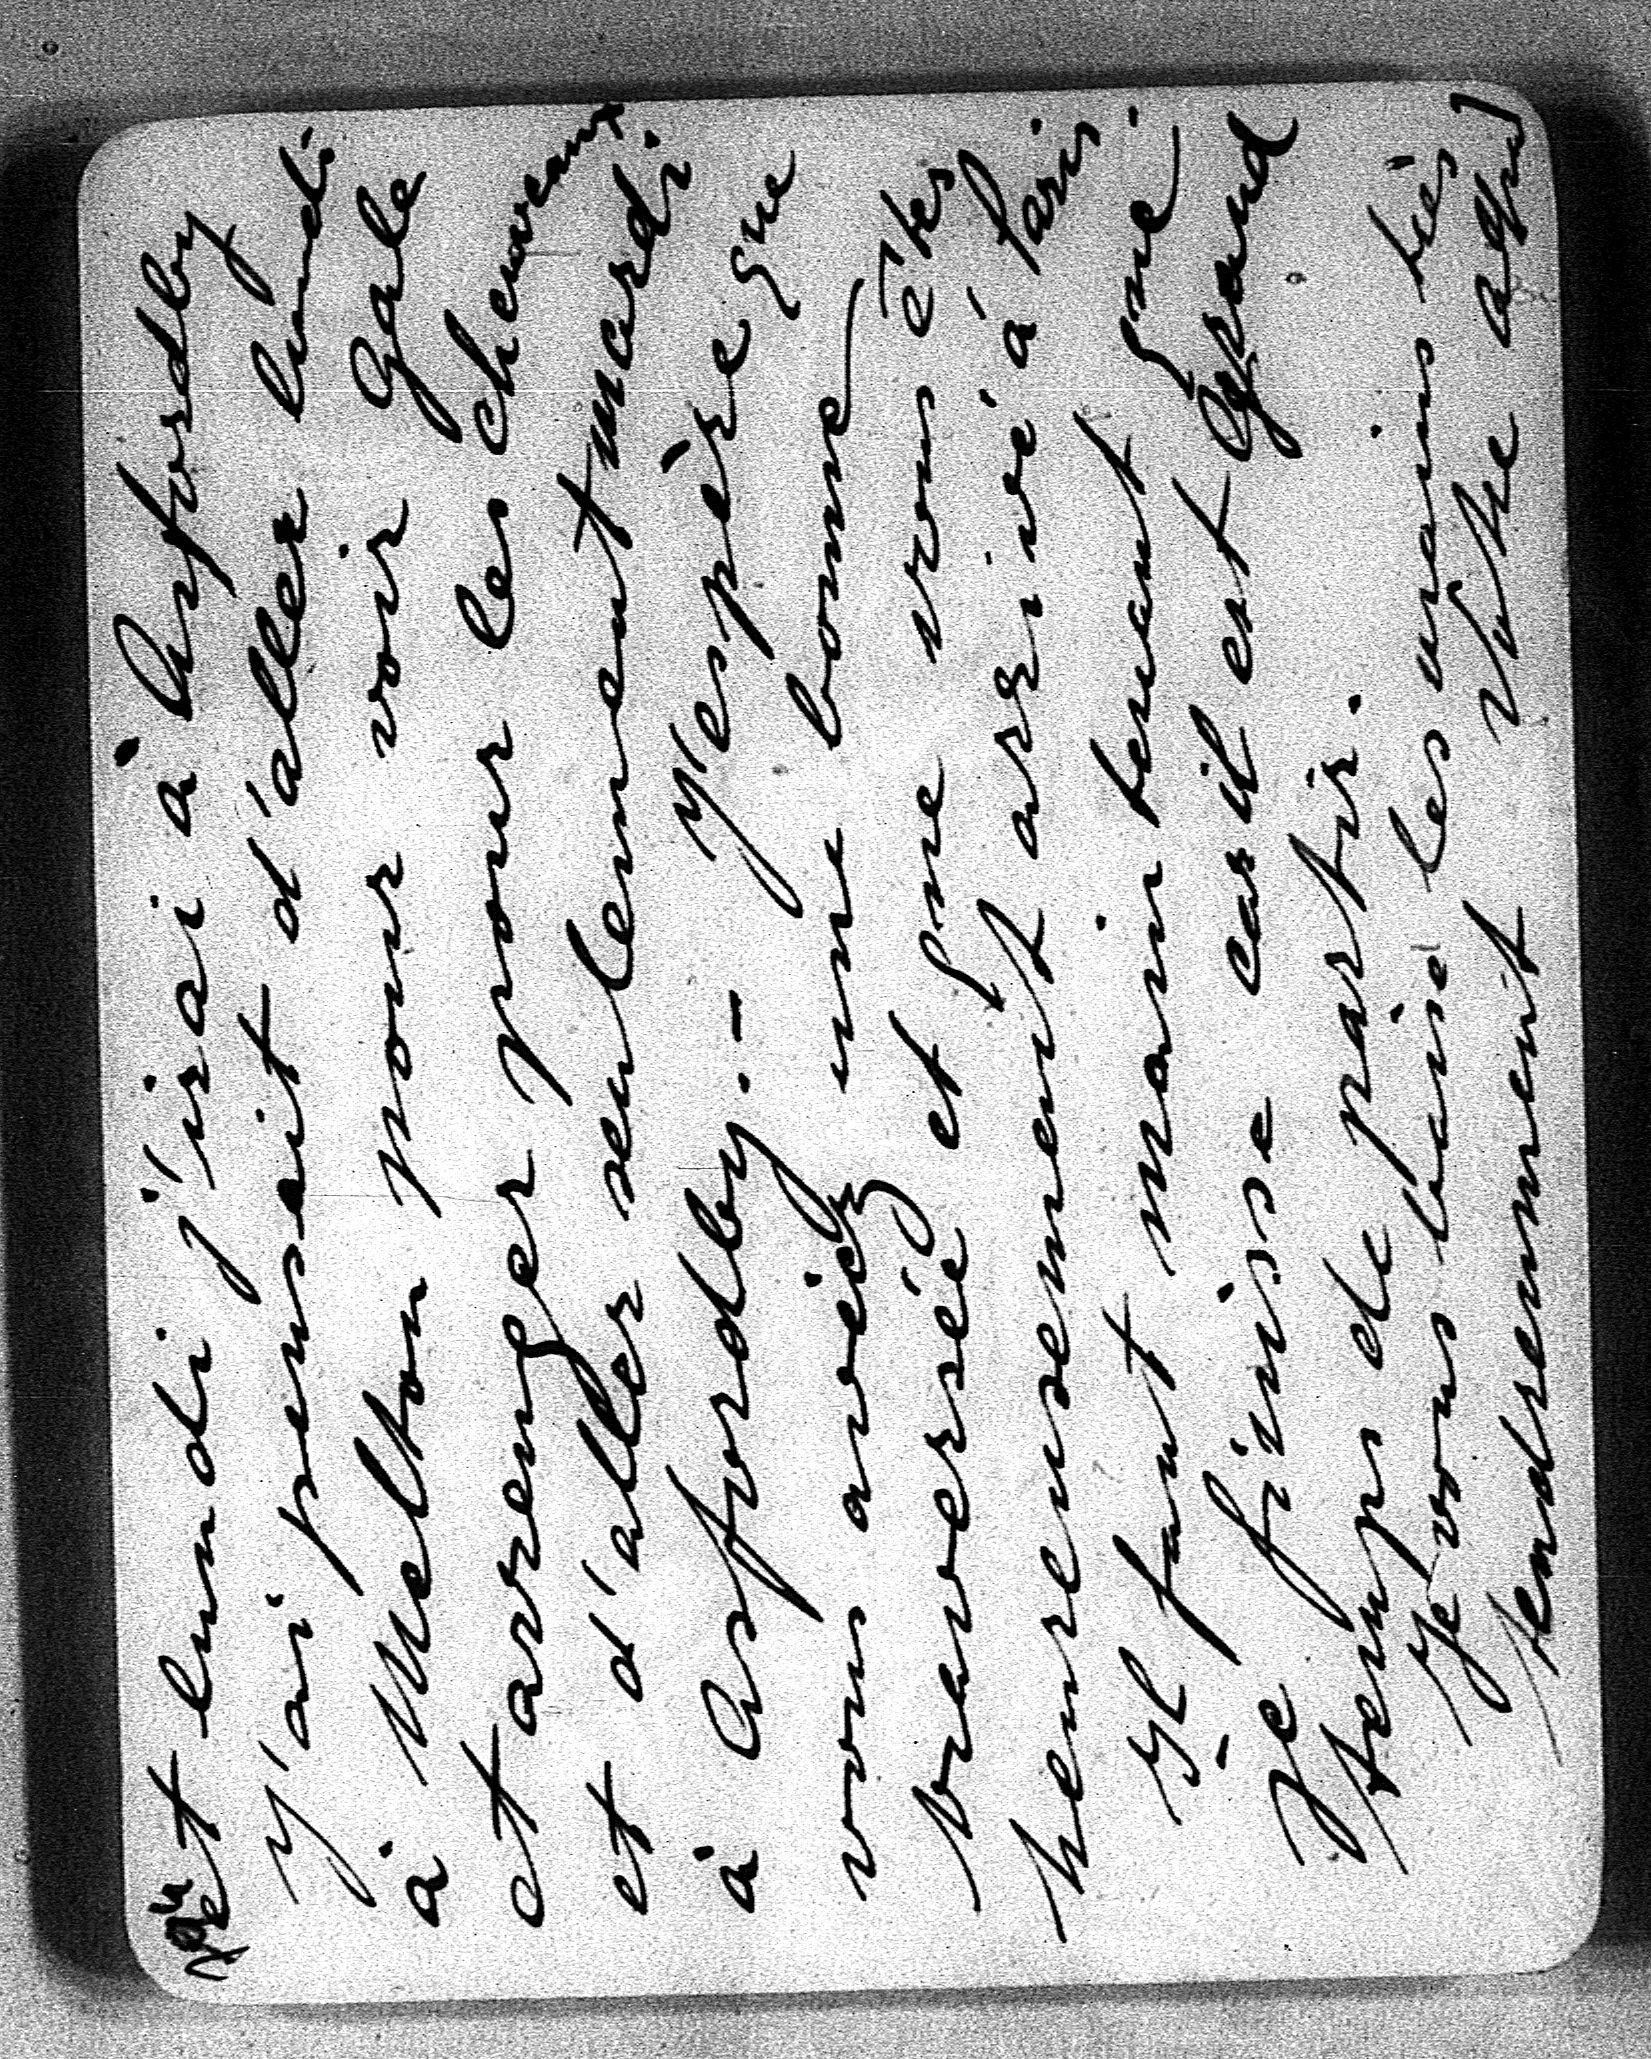 et lundi j'irai à Asfordby
J'ai pensait d'aller lundi
à Melton pour voir Gale
et arenger pour les cheuveaux
et d'aller seulement mardi
à Asfordby. — J'espère que
vous aviez une bonne
traversée et que vous êtes
heureusement arrivé à Paris.
Il faut maintenant que
Je finisse car il est Grand
temps de partir.
Je vous baise les mains très
tendrement Votre